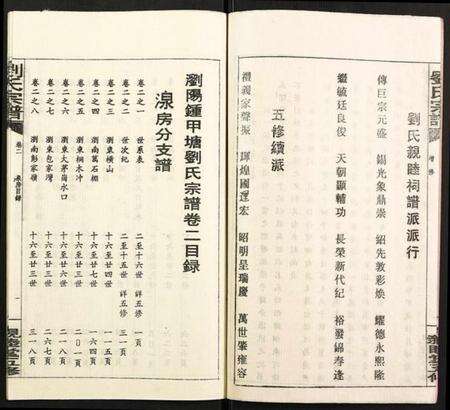 劉氏宗譜
劉氏親睦祠譜派派行
傳巨宗元盛 錫光象鼎崇 紹先敦彩煥 耀德永熙隆
繼毓廷良俊 天朝顯輔功 長榮新代紀 裕發錦春逢
五修續派
禮義家聲振 輝煌國運宏 昭明呈瑞慶 萬世肇雍容
瀏陽鍾甲塘劉氏宗譜卷二目錄
湶房分支譜
卷二之一 世系表 二至十六世 詳五修 一頁
卷二之二 世次紀 二至十五世 詳五修 三一頁
卷二之三 瀏東橫山 十六至廿四世 四一頁
卷二之四 瀏南萬石棚 十六至廿七世 一六四頁
卷二之五 瀏東桐木冲 十六至廿六世 二〇一頁
卷二之六 瀏東大茅崗水口 十六至廿三世 二一八頁
卷二之七 瀏東包家灣 十六至廿三世 二六七頁
卷二之八 瀏南彭家嶺 十六至廿三世 三一八頁
劉氏宗譜
卷二
湶房目錄
一
親睦堂五修